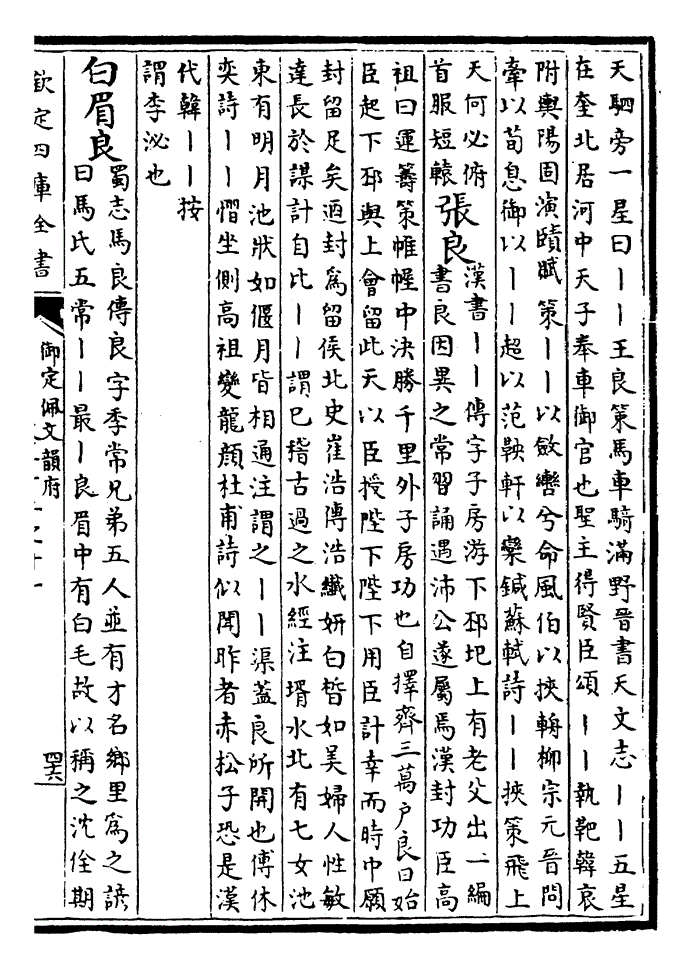 天駟旁一星曰〡〡王良策馬車騎滿野晉書天文志〡〡五星
在奎北居河中天子奉車御官也聖主得賢臣頌〡〡執靶韓哀
附輿陽固演賾賦策〡〡以斂轡兮命風伯以挾輈柳宗元晉問
牽以荀息御以〡〡超以范鞅軒以欒鍼蘇軾詩〡〡挾策飛上
天何必俯
首服短轅
張良
漢書〡〡傳字子房游下邳圯上有老父出一編
書良因異之常習誦遇沛公遂屬焉漢封功臣高
祖曰運籌策帷幄中決勝千里外子房功也自擇齊三萬户良曰始
臣起下邳與上會留此天以臣授陛下陛下用臣計幸而時中願
封留足矣迺封為留侯北史崔浩傳浩纎妍白晳如美婦人性敏
達長於謀計自比〡〡謂已稽古過之水經注壻水北有七女池
東有明月池狀如偃月皆相通注謂之〡〡渠葢良所開也傅休
奕詩〡〡慴坐側高祖變龍顔杜甫詩似聞昨者赤松子恐是漢
代韓〡〡按
謂李泌也
白眉良
蜀志馬良傳良字季常兄弟五人並有才名鄉里為之諺
曰馬氏五常〡〡最〡良眉中有白毛故以稱之沈佺期
欽定四庫全書
御定佩文韻府
四六